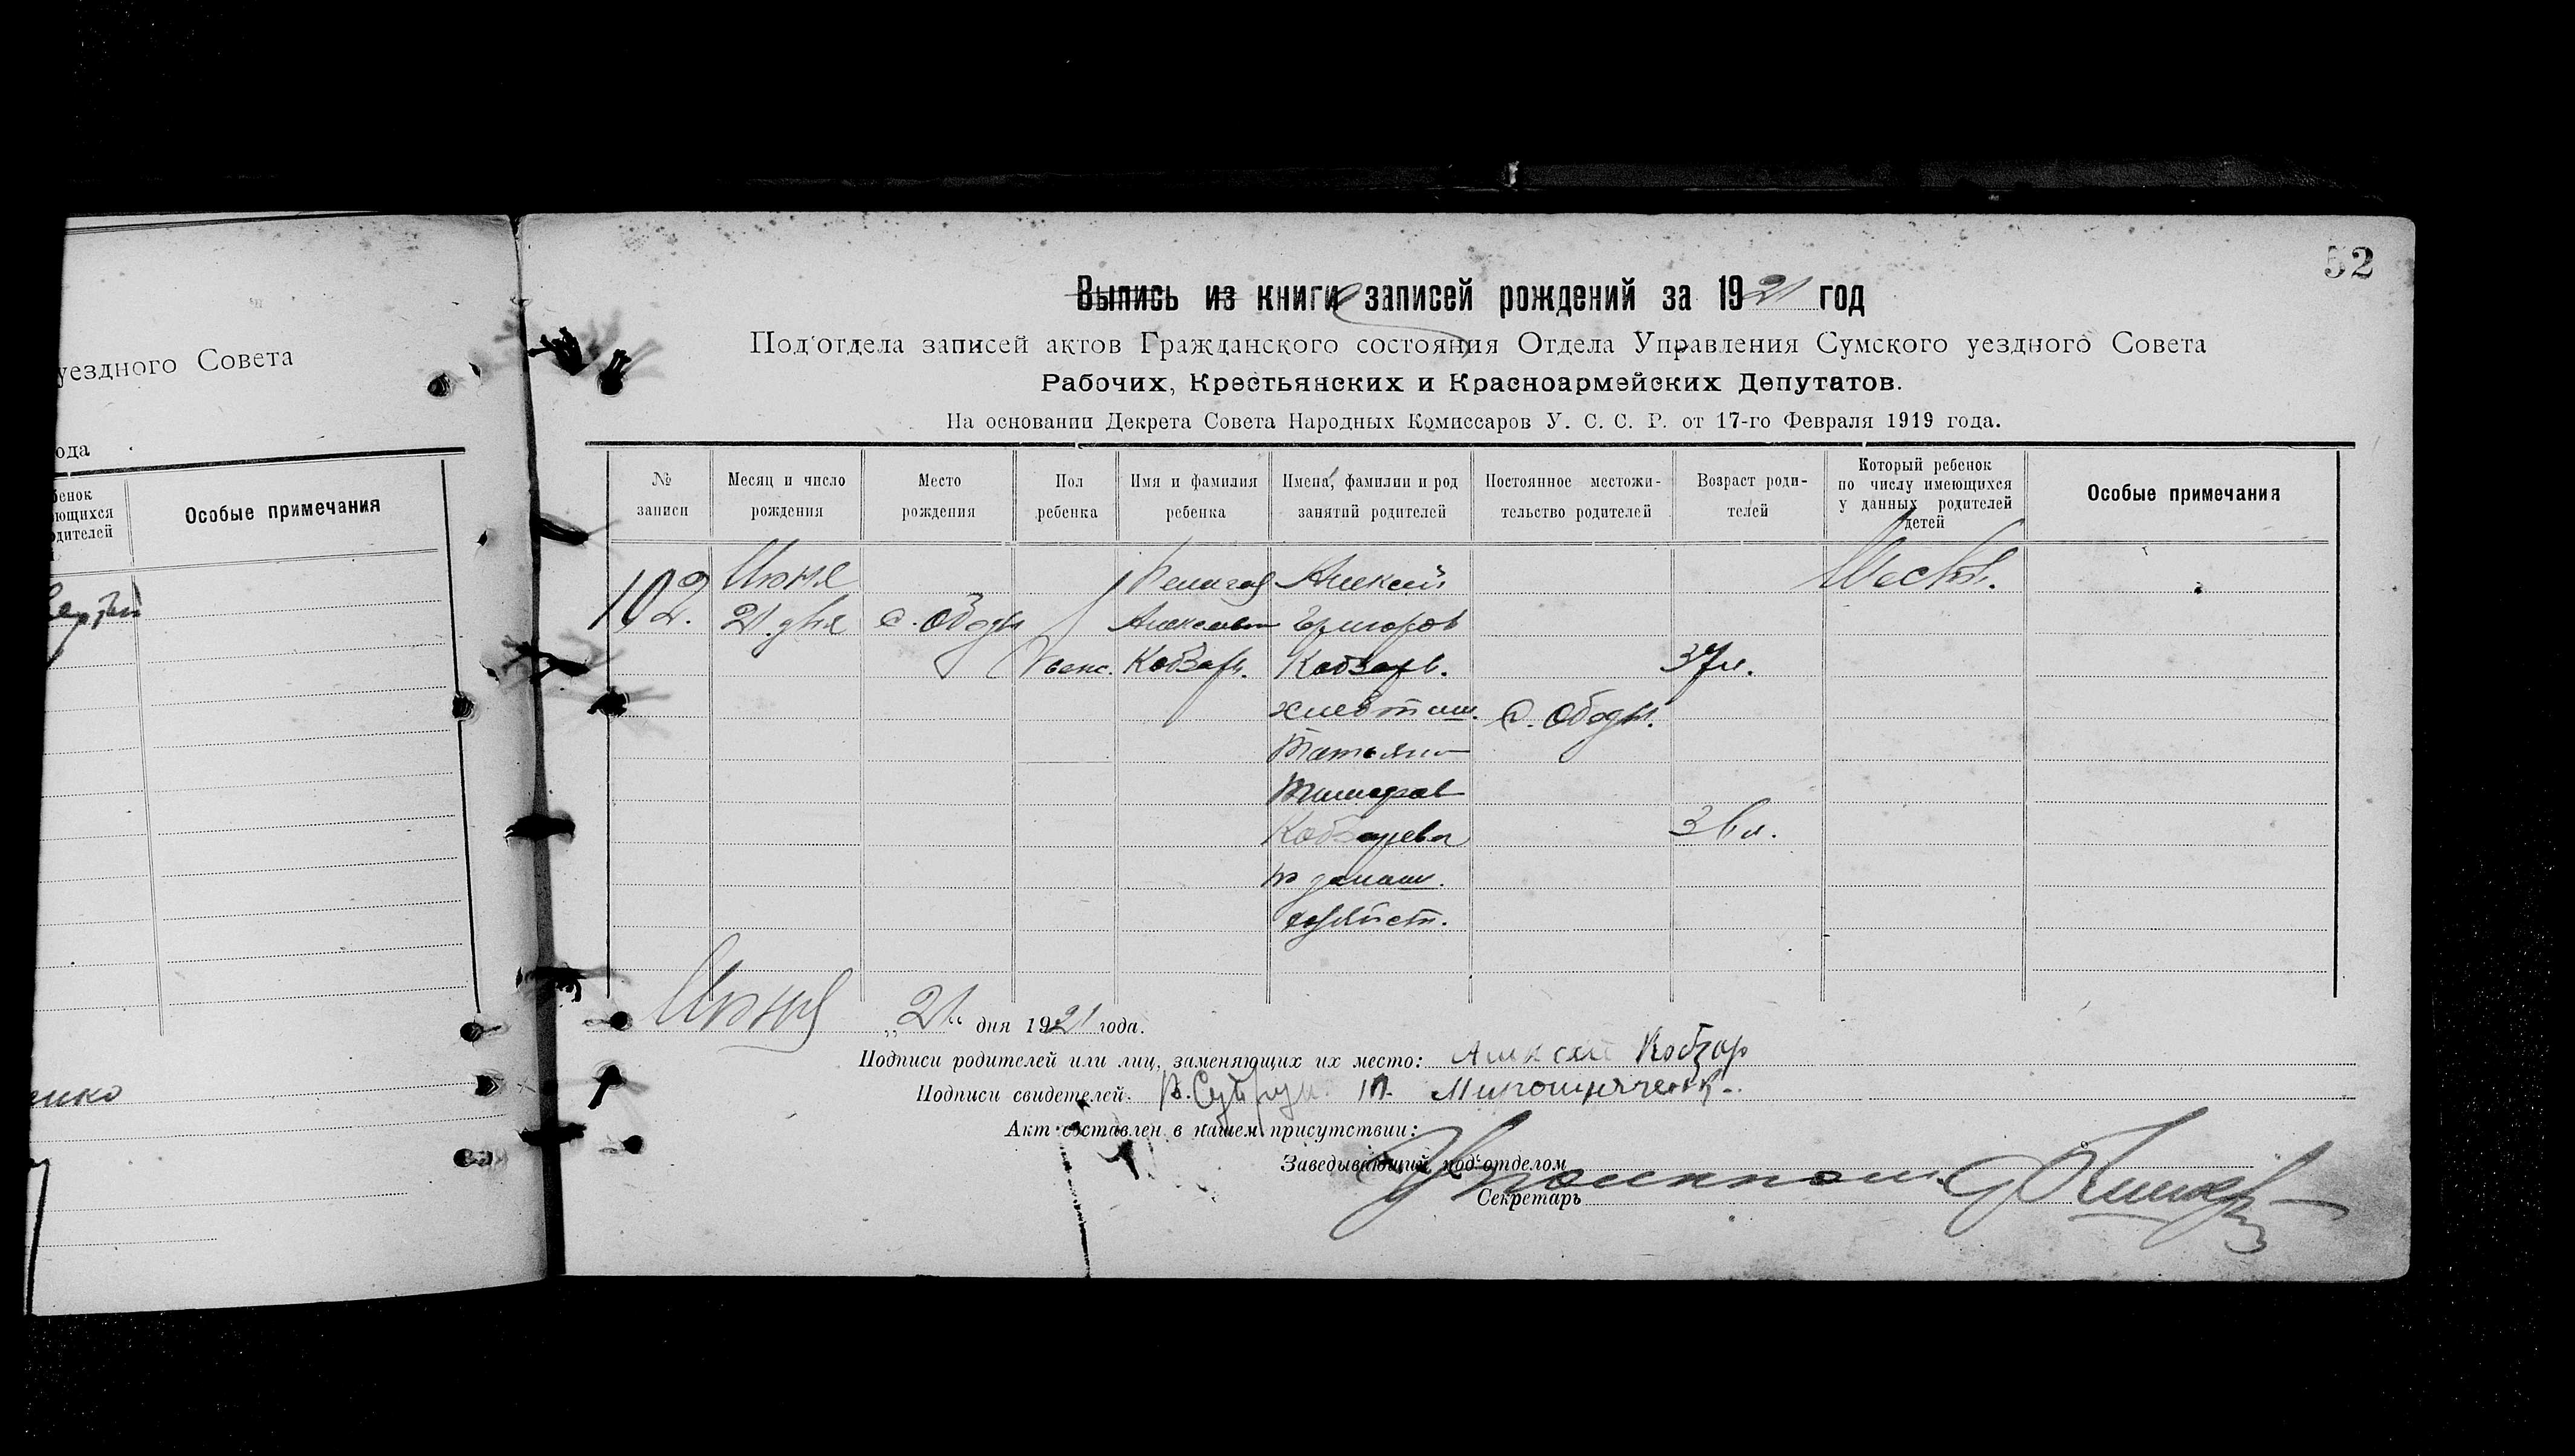 уездного Совета
ода
бенок
ющихся
одителей
Особые примечания
енко
52
Выпись из книги записей рождений за 1921 год
Под'отдела записей актов Гражданского состояния Отдела Управления Сумского уездного Совета
Рабочих, Крестьянских и Красноармейских Депутатов.
На основании Декрета Совета Народных Комиссаров У. С. С. Р. от 17-го Февраля 1919 года.
№ записи
Месяц и число рождения
Место рождения
Пол ребенка
Имя и фамилия ребенка
Имена, фамилии и род занятий родителей
Постоянное местожительство родителей
Возраст родителей
Который ребенок по числу имеющихся у данных родителей детей
Особые примечания
102.
Июня
21 дня
с. Ободы
женс.
Кобзарь.
Алексей
Григоров
Кобзарь.
хлебопаш.
Татьяна
Кобзарева
по домаш.
хозяйст.
с. Ободы.
37 л.
36 л.
Шест.
Июня „21“ дня 1921 года.
Подписи родителей или лиц, заменяющих их место: Алексей Кобзар
Подписи свидетелей: П. Мирошниченк
Акт составлен в нашем присутствии:
Заведывающий под'отделом
Секретарь